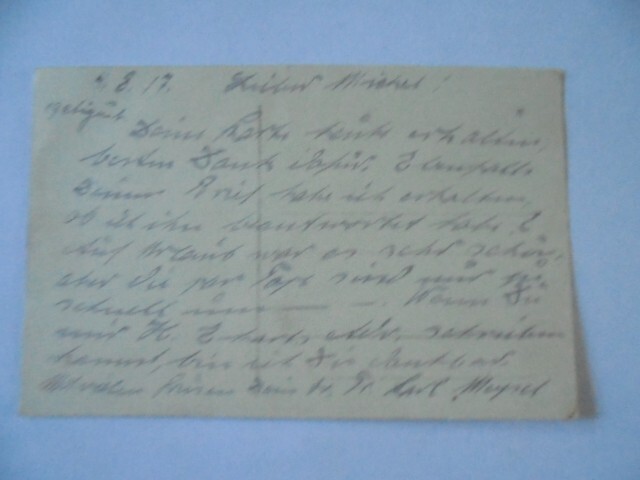 8. 17. Lieber Michel!
Deine Karte heute erhalten,
besten Dank dafür. Ebenfalls
Deinen Brief habe ich erhalten,
ob ich ihn beantwortet habe?
Auf Urlaub war es sehr schön,
aber die par Tage sind nur zu
schnell um — — —. Wenn Du
mir H. Adr. schreiben
kannst, bin ich Dir dankbar.
Mit vielen Grüssen Dein Karl